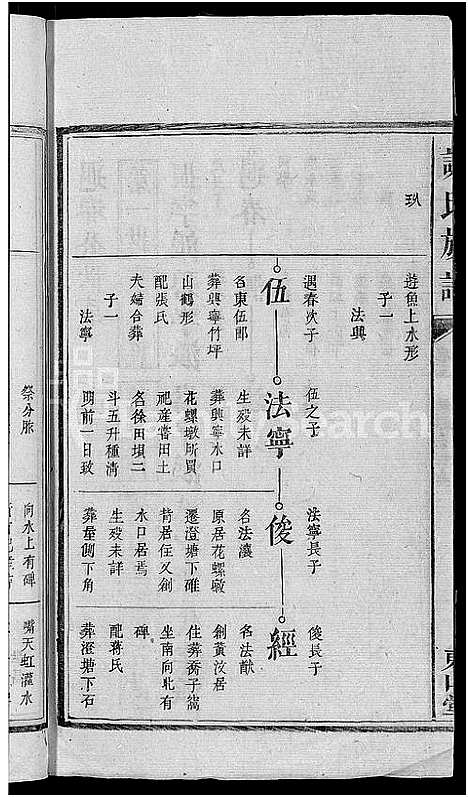 氏族
玖
遊魚上水形
子一
法興
遇春次子
伍
名東伍郎
葬興寧竹坪
山鶴形
配張氏
夫婦合葬
子一
法寧
伍之子
法寧
生殁未詳
葬興寧水口
花螺墩所買
祀産嘗田土
名徐田垻二
斗五升種清
明前一日致
祭分胙
法寧長子
俊
名法瀼
原居花螺墩
遷澄塘下碓
背居住久創
水口居焉
生殁未詳
葬屋側下角
向水上有碑
俊長子
經
名法猷
創黃汶居
住葬
坐南向北有
碑
配蔣氏
葬澄塘下石
嘴天虹灌水